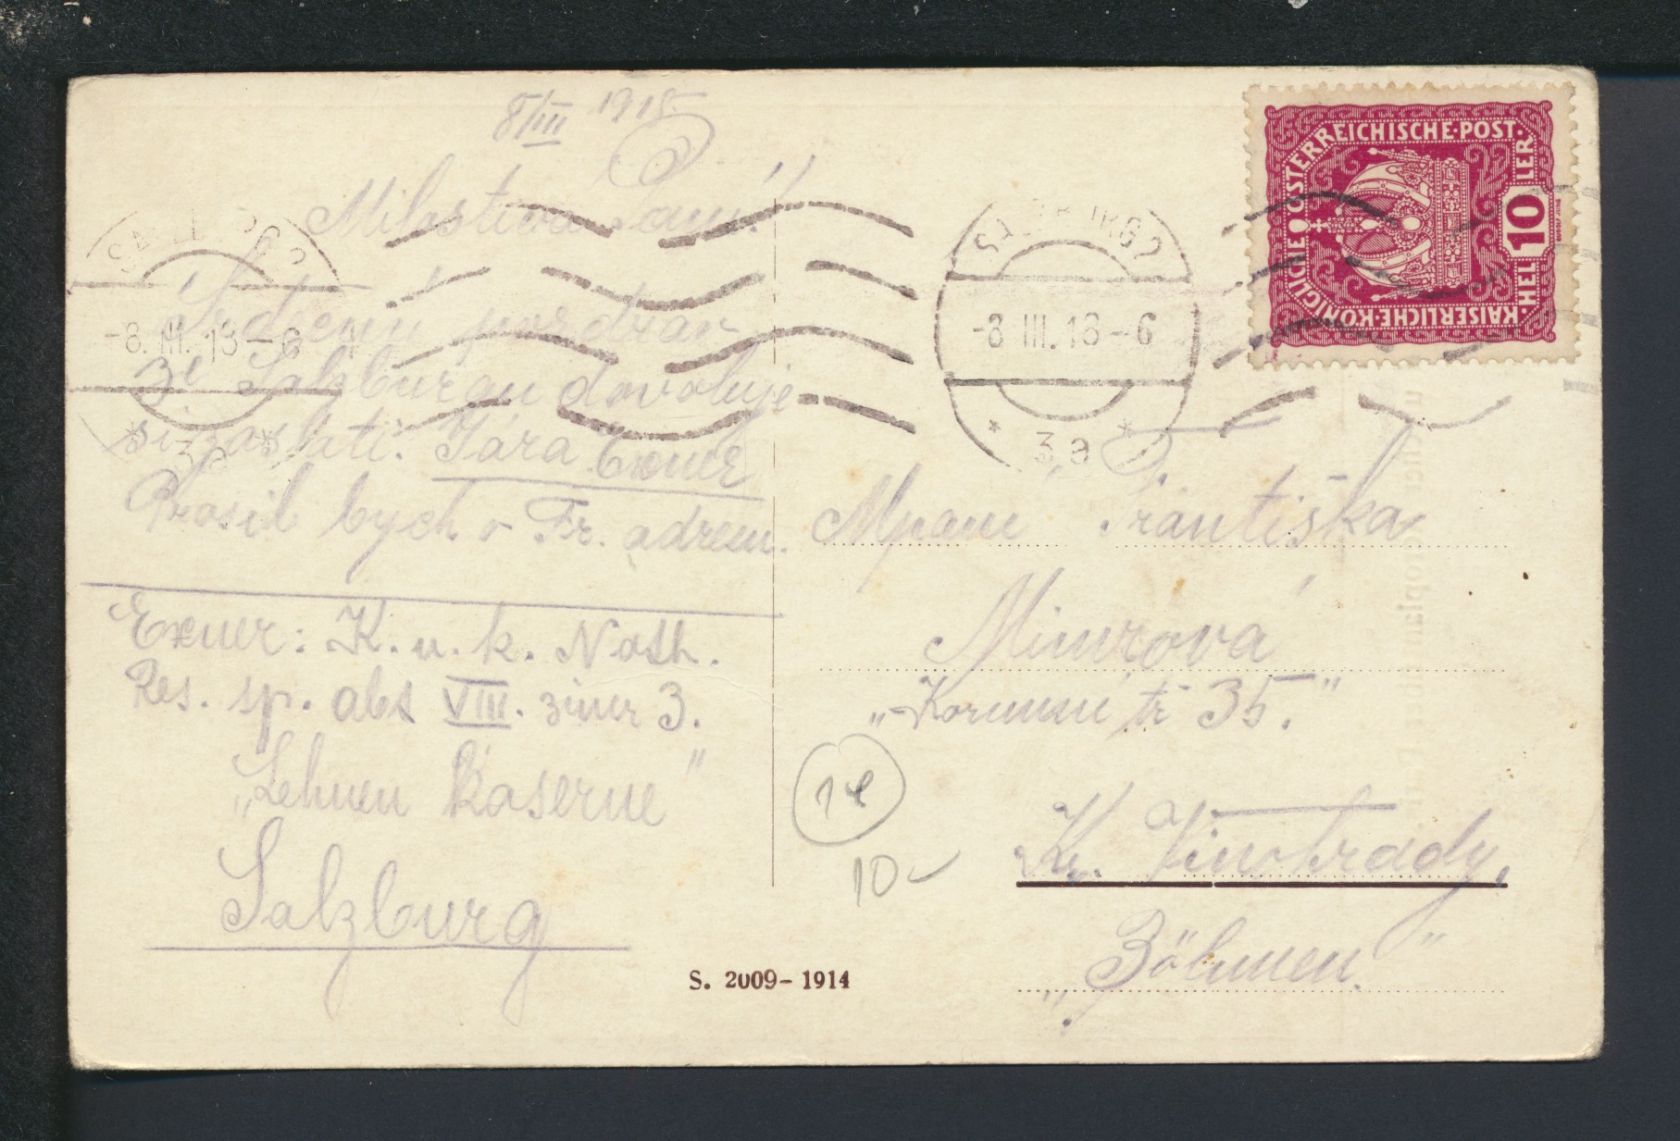 8/III 1918
Milostivá Paní!
Srdečný pozdrav
ze Salzburgu dovoluje
si zaslati: Jára Exner
Prosil bych o Fr. adresu.
Exner: K. u. k. Noth.
Res. sp. abt VIII. zimr 3.
„Lehnen Kaserne"
Salzburg
S. 2009-1914
KAISERLICHE·KÖNIGLICHE ÖSTERREICHISCHE·POST·
HEL 10 LER
SALZBURG 2
-8. III. 18-6
* 3a *
SALZBURG 2
-8 III. 18-6
* 3a *
Mpaní Františka
Minrová
„Korunní tř 35."
K. Vinohrady,
„Böhmen."
10